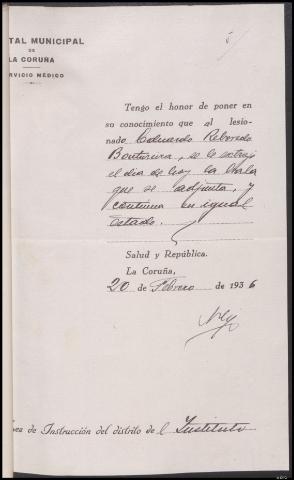 TAL MUNICIPAL
DE
LA CORUÑA
RVICIO MÉDICO
Tengo el honor de poner en
su conocimiento que al lesio-
nado Eduardo Reboredo
se le extrajo
el día de hoy la bala
que se adjunta, y
continua en igual
estado.
Salud y República.
La Coruña,
20 de Febrero de 1936
ez de Instrucción del distrito de l Instituto